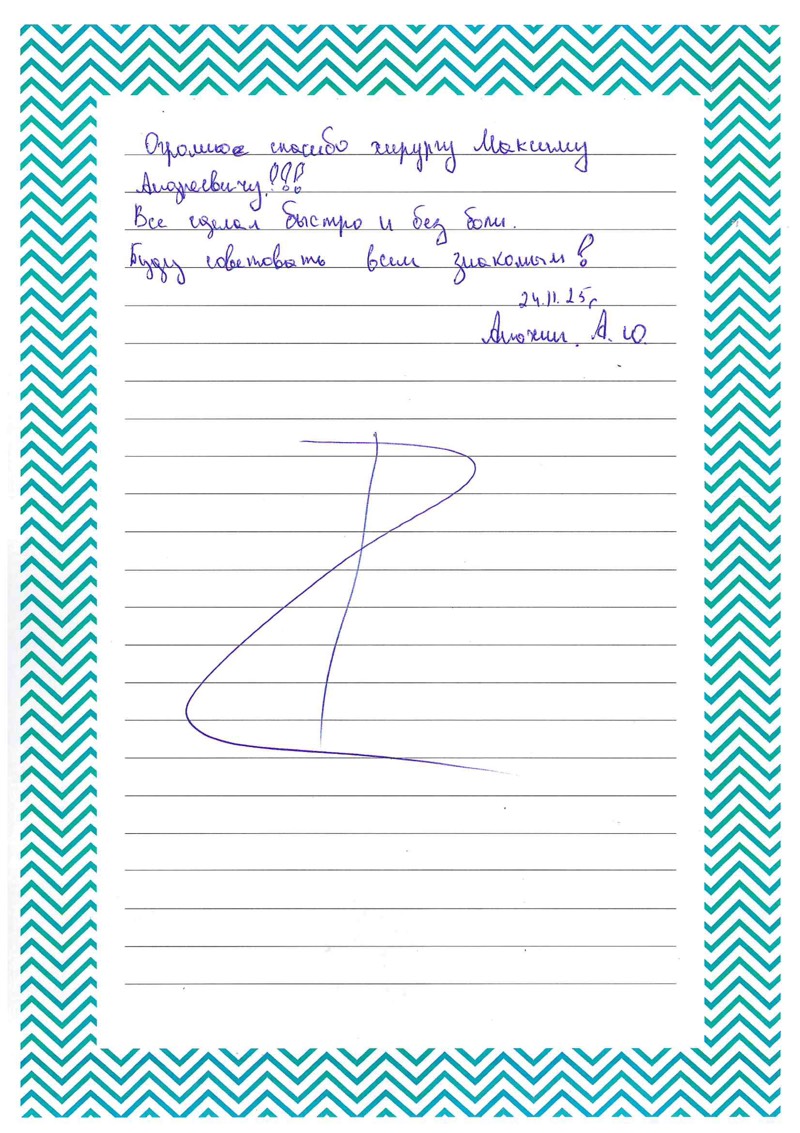 Огромное спасибо хирургу Максиму
Андреевичу!!!
Все сделал быстро и без боли.
Буду советовать всем знакомым!
24.11.25г
Анохин. А. Ю.